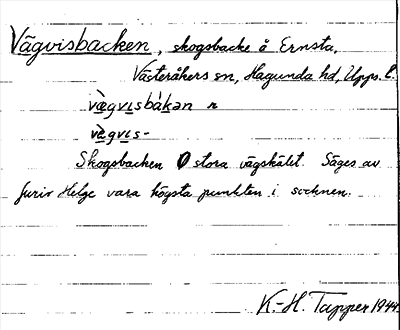 Vägvisbacken, skogsbacke å Ernsta,
Västeråkers sn, Hagunda hd, Upps. l.
væ̀gvısbák̀ən ʀ
vægvıs-
Skogsbacken O stora vägskälet. Säges av
furir Helge vara högsta punkten i socknen.
K.-H. Tapper 1944.